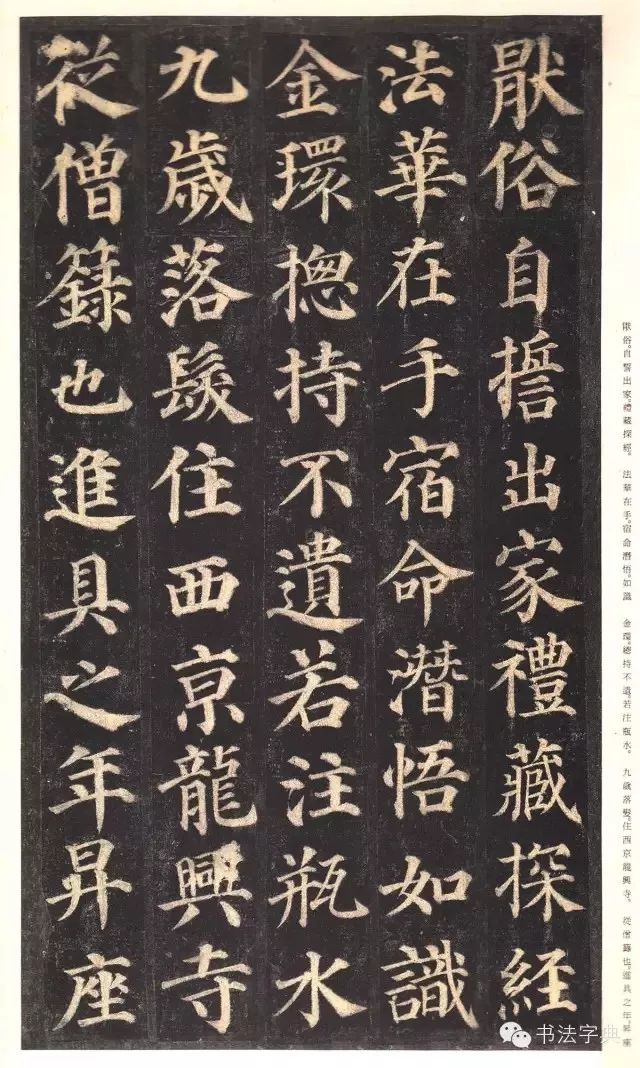 猒俗自誓出家禮藏探經
法華在手宿命潛悟如識
金環揔持不遺若注瓶水
九歲落髮住西京龍興寺
從僧籙也進具之年昇座
猒俗。自誓出家。禮藏探經。 法華在手。宿命潛悟。如識 金環。總持不遺。若注瓶水。 九歲落髮。住西京龍興寺。 從僧籙也。進具之年。昇座
书法字典